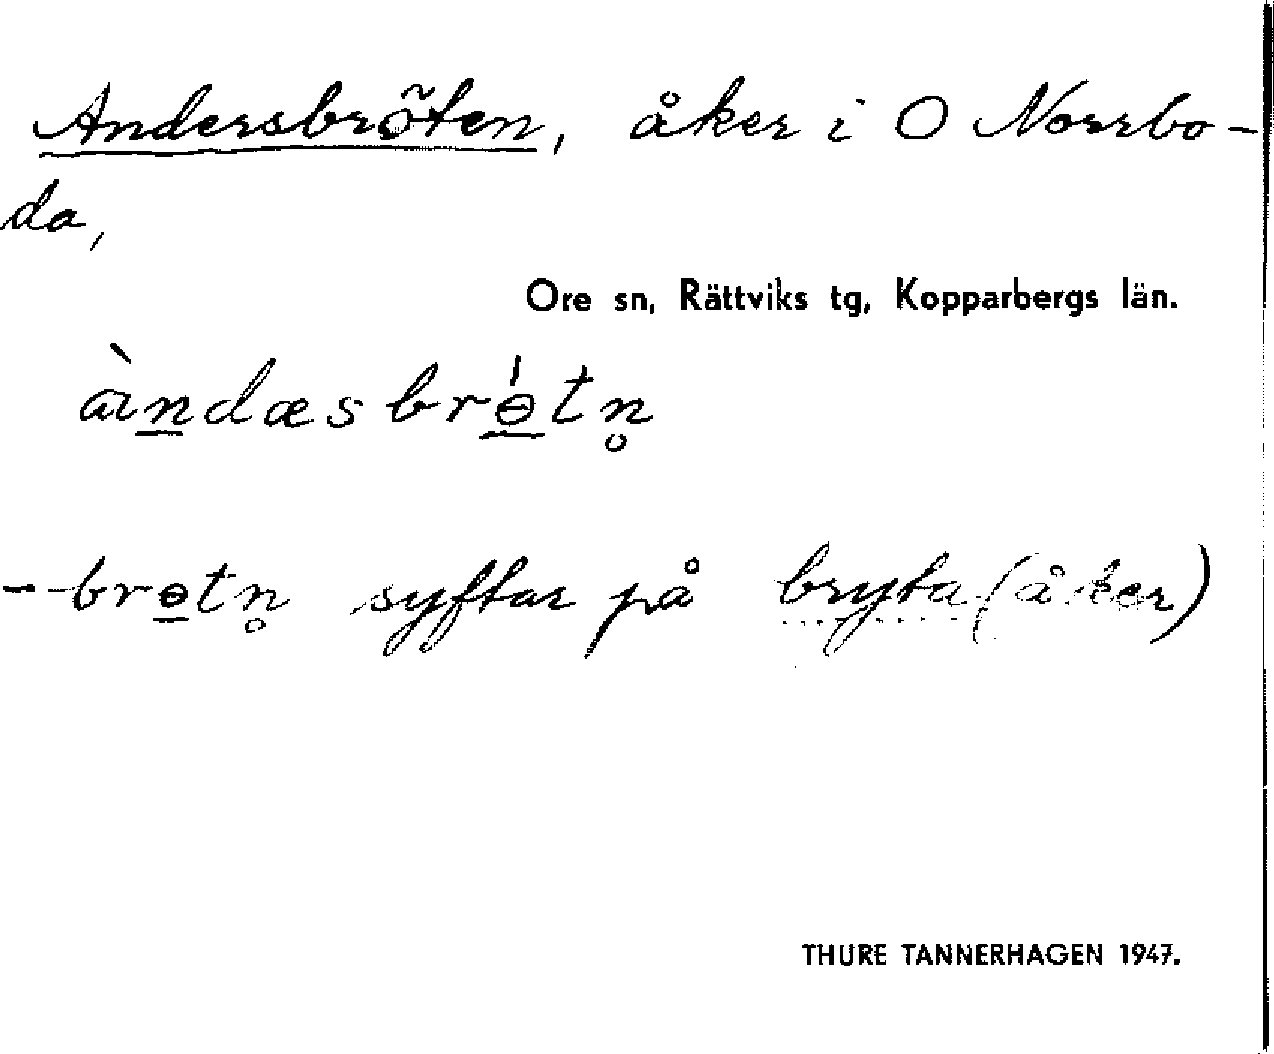 Andersbröten, åker i O Norrbo-
da,
Ore sn, Rättviks tg, Kopparbergs län.
àndæsbrɵ́tn̥
-brɵtn̥ syftar på bryta (åker)
THURE TANNERHAGEN 1947.